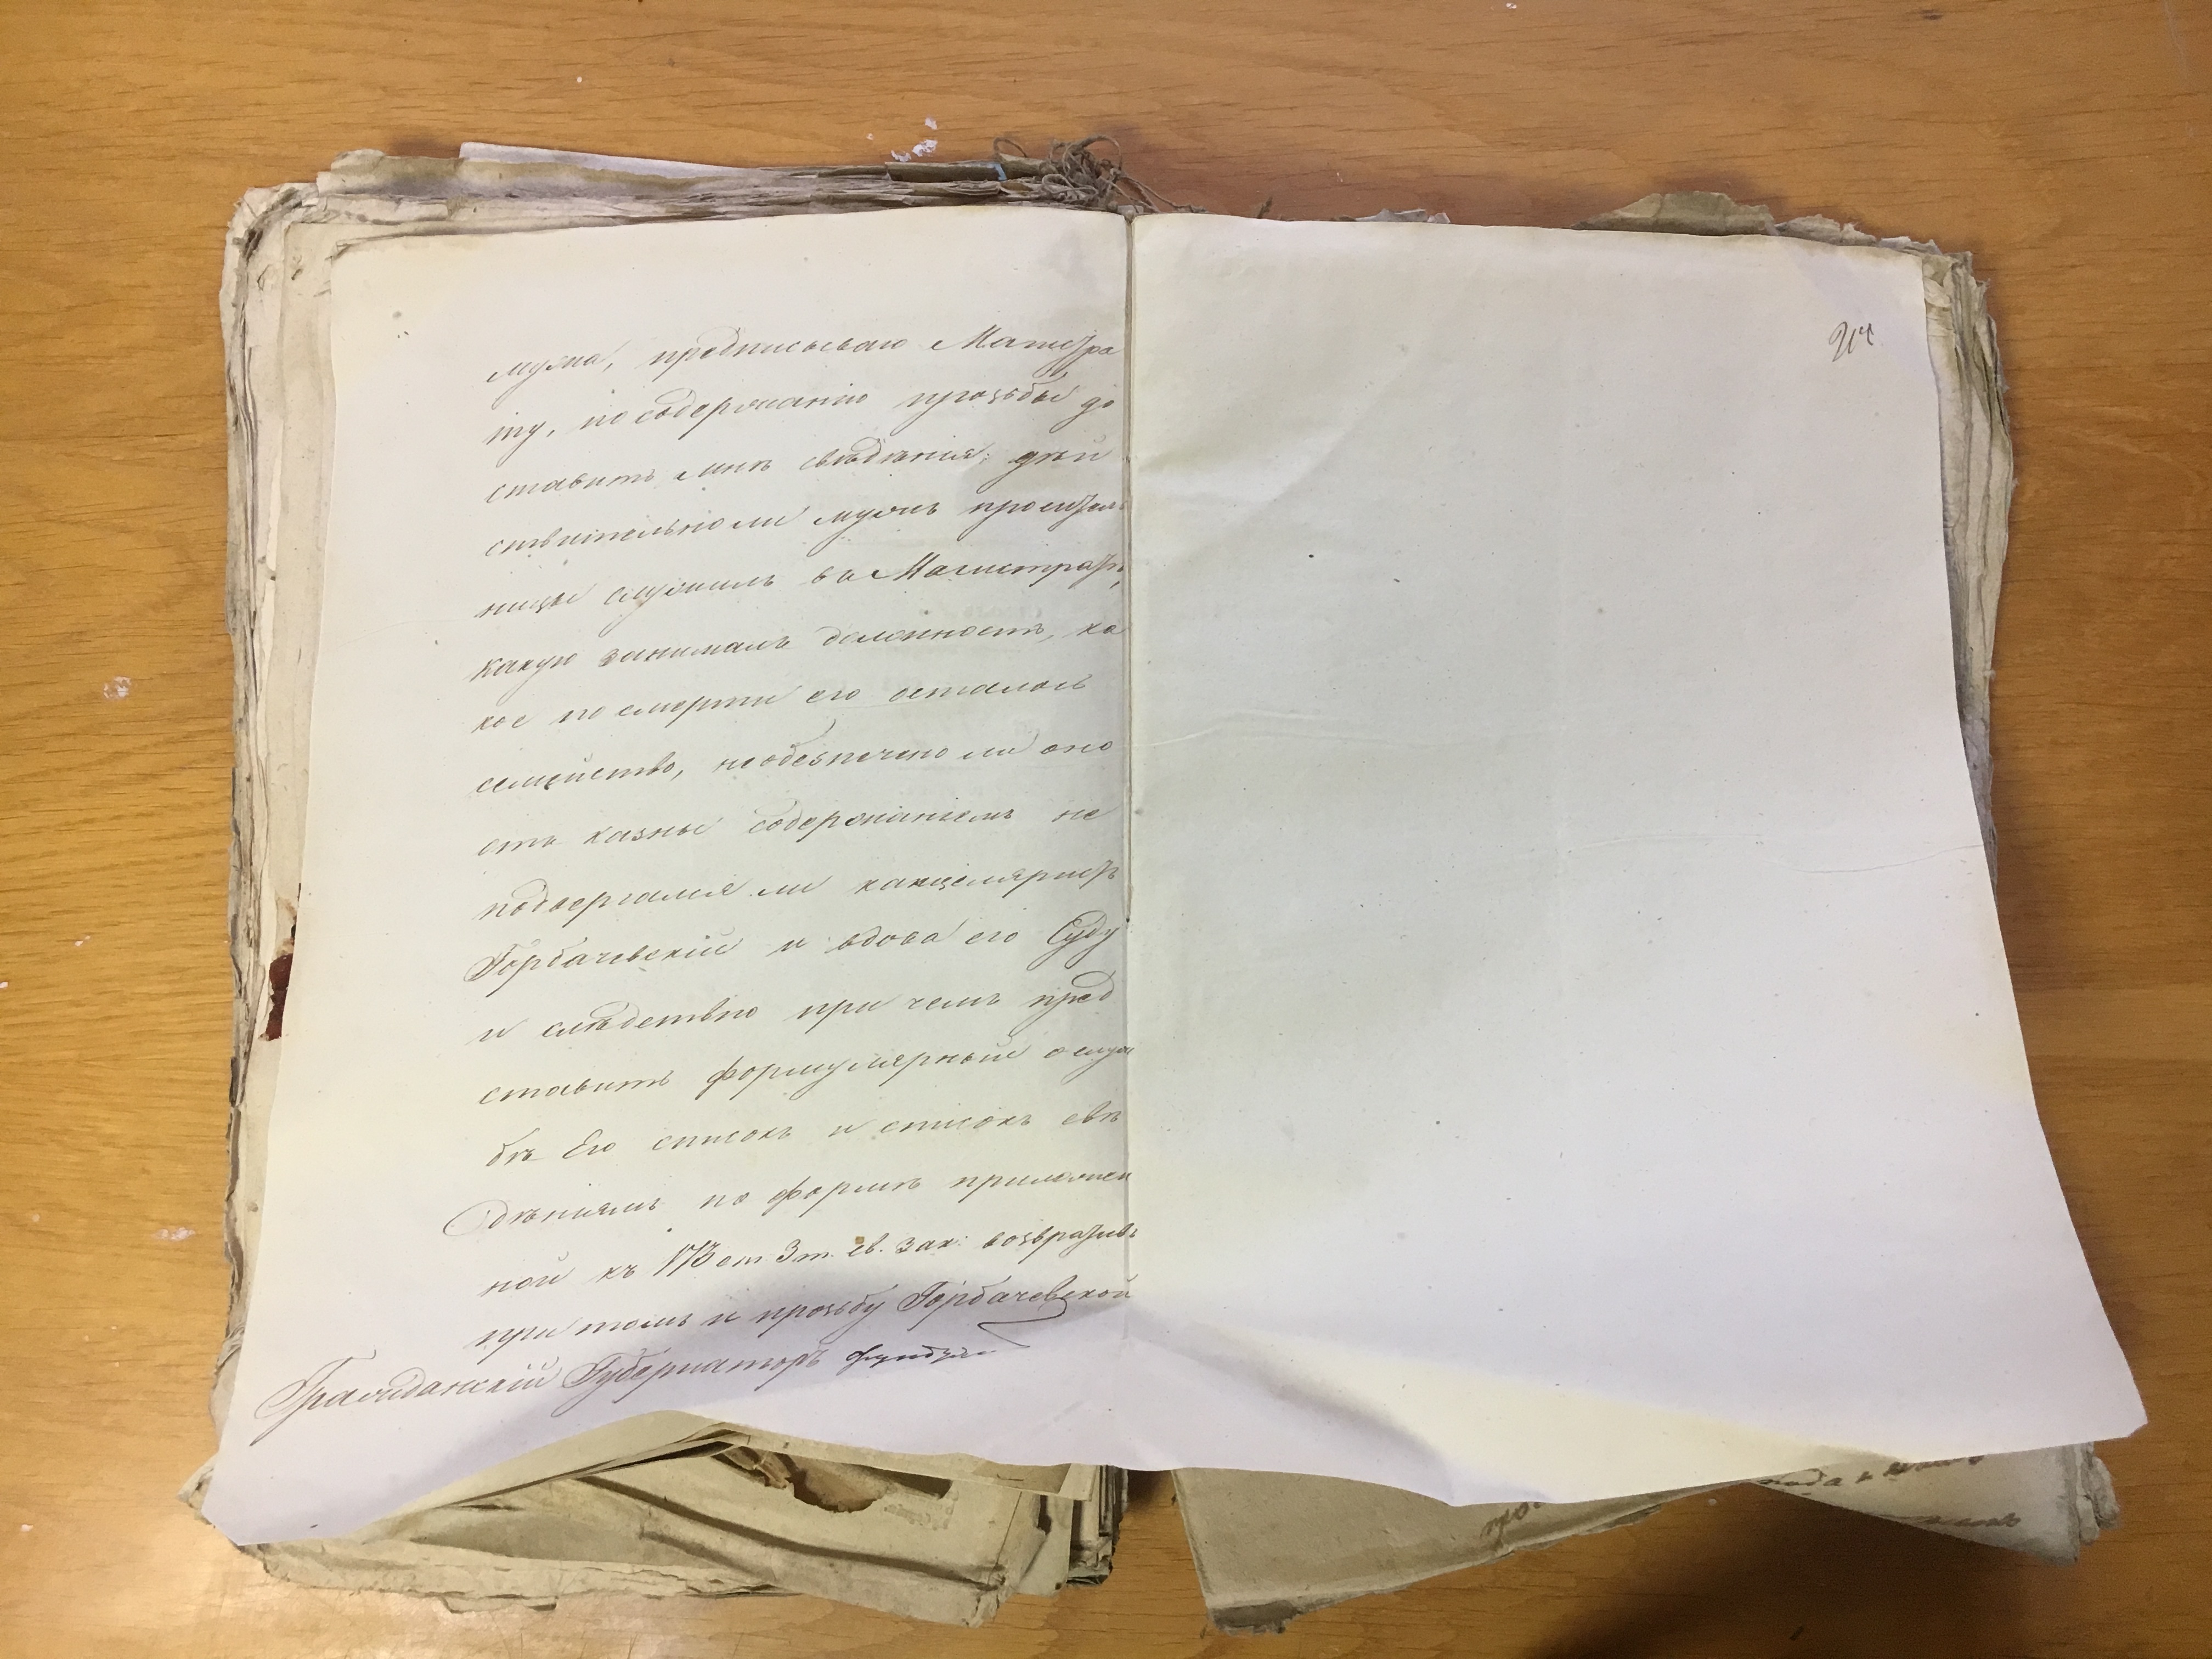 мужа, предписываю Магистра
ту, по содержанію прозьбы до
ставить мнѣ свѣдѣнія; дѣй
ствительно ли мужъ проситель
ницы служилъ въ Магистратѣ,
какую занималъ должность, ка
кое по смерти его осталось
семейство, необезпечено ли оно
отъ казны содержаніемъ не
подвергался ли канцеляристъ
Горбачевскій и вдова его Суду
и слѣдствію при чемъ пред
ставить формулярный о слу
бѣ Его списокъ и списокъ свѣ
дѣніямъ по формѣ приложен
ной къ 173 ст. 3 т. св. зак: возвративъ
при томъ и прозьбу Горбачевской
Гражданскій Губернаторъ